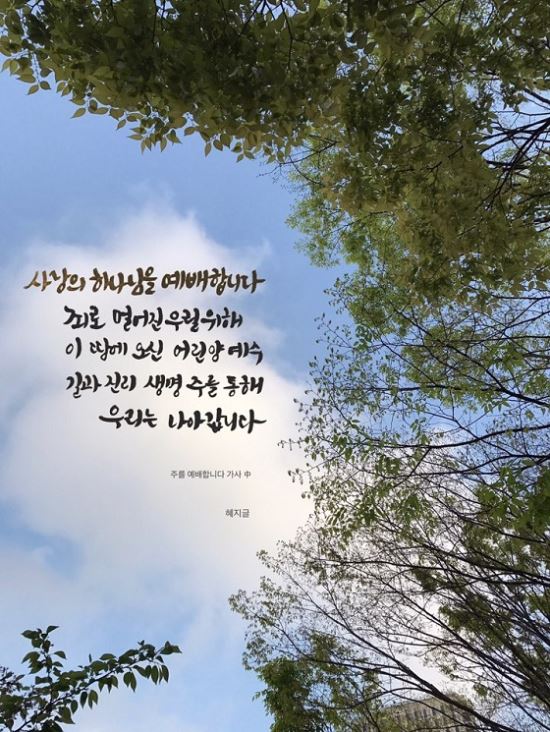 사랑의 하나님을 예배합니다
죄로 멀어진 우릴 위해
이 땅에 오신 어린양 예수
길과 진리 생명 주를 통해
우리는 나아갑니다
주를 예배합니다 가사 中
혜지글